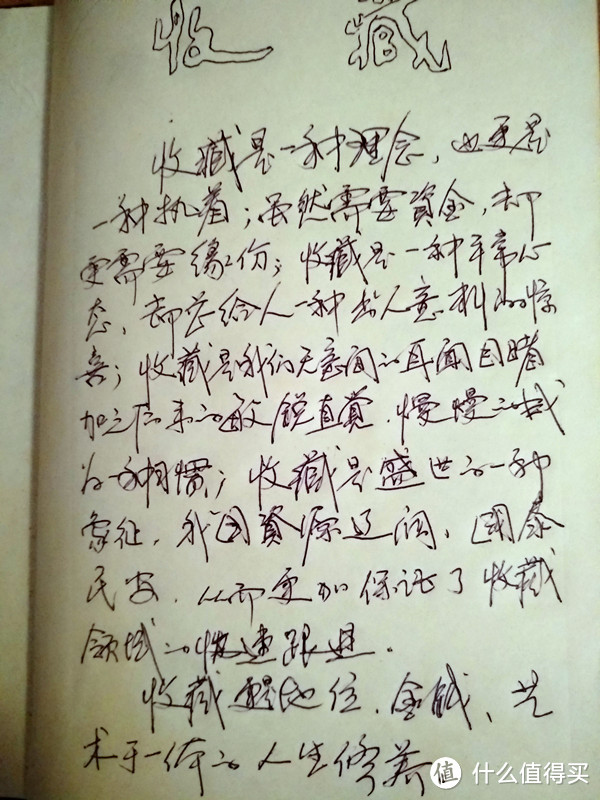 收藏
收藏是一种理念，也更是
一种执着；虽然需要資金，却
更需要缘份；收藏是一种平常心
态，却若给人一种出人意料的惊
喜；收藏是我们无意间的耳闻目睹
加之后来的敏锐直赏，慢慢的成
为一种相惯；收藏是盛世的一种
象征，我国資源辽阔，国泰
民安，从而更加保证了收藏
领域的快速跟进。
收藏是地位、金钱、艺
术于一体的人生修养
值 什么值得买